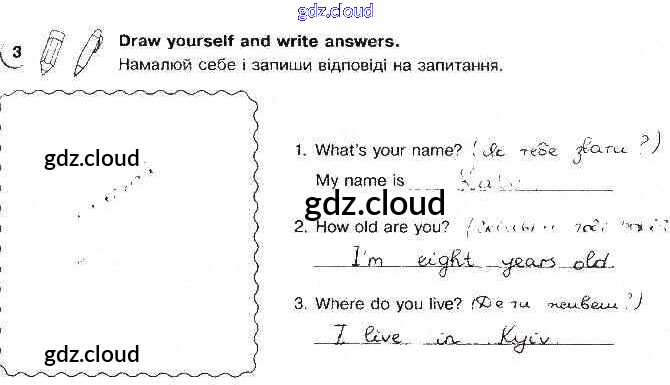 gdz.cloud
3
Draw yourself and write answers.
Намалюй себе і запиши відповіді на запитання.
gdz.cloud
1. What's your name? (Як тебе звати?)
My name is
gdz.cloud
2. How old are you?
I'm eight years old
3. Where do you live? (Де ти живеш?)
I live in Kyiv.
gdz.cloud